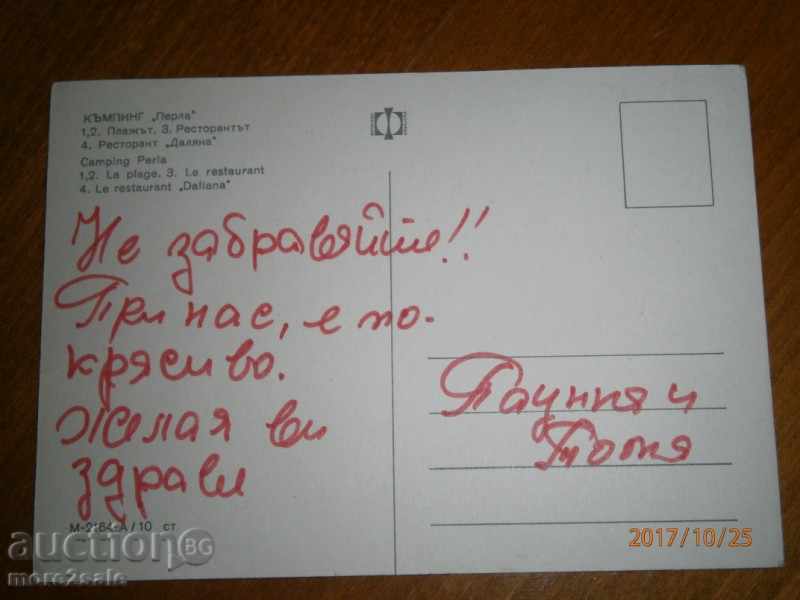 КЪМПИНГ „Перла"
1,2. Плажът. 3. Ресторантът
4. Ресторант „Даляна"
Camping Perla
1,2. La plage. 3. Le restaurant
4. Le restaurant "Daliana"
Не забравяйте!!
При нас, е по-
красиво.
Желая ви
здраве
и
Тотка
М-2164-А/10 ст.
auctionBG
more2sale
2017/10/25